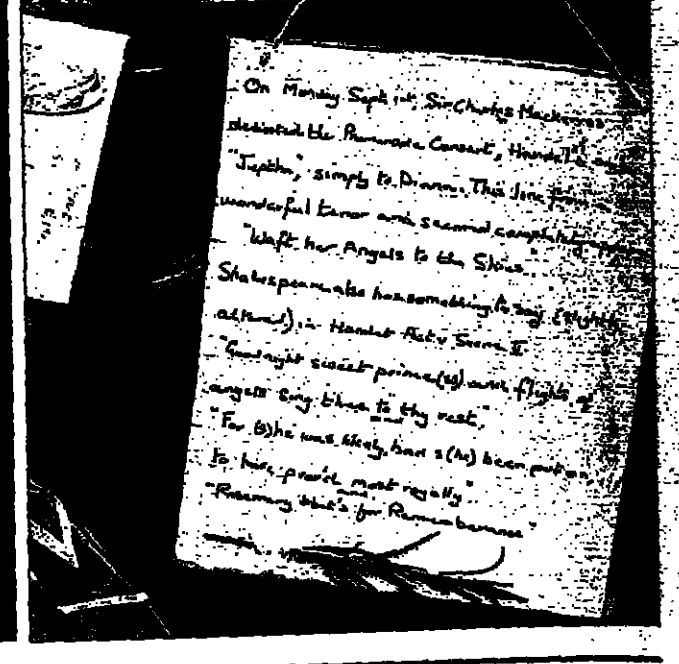 On Monday Sept 1st, Sir Charles Mackerras
dedicated the Promenade Concert, Handel's
"Jeptha," simply to Diana. This line from
wonderful tenor and seemed completely
"Waft her Angels to the Skies."
Shakespeare also has something to say (slightly
altered), in Hamlet Act V Scene II.
"Goodnight sweet prince(ss) and flights of
angels sing thee to thy rest."
and
"For (s)he was likely, had s(he) been put on,
to have prov'd most royally".
and,
"Rosemary that's for Remembrance"